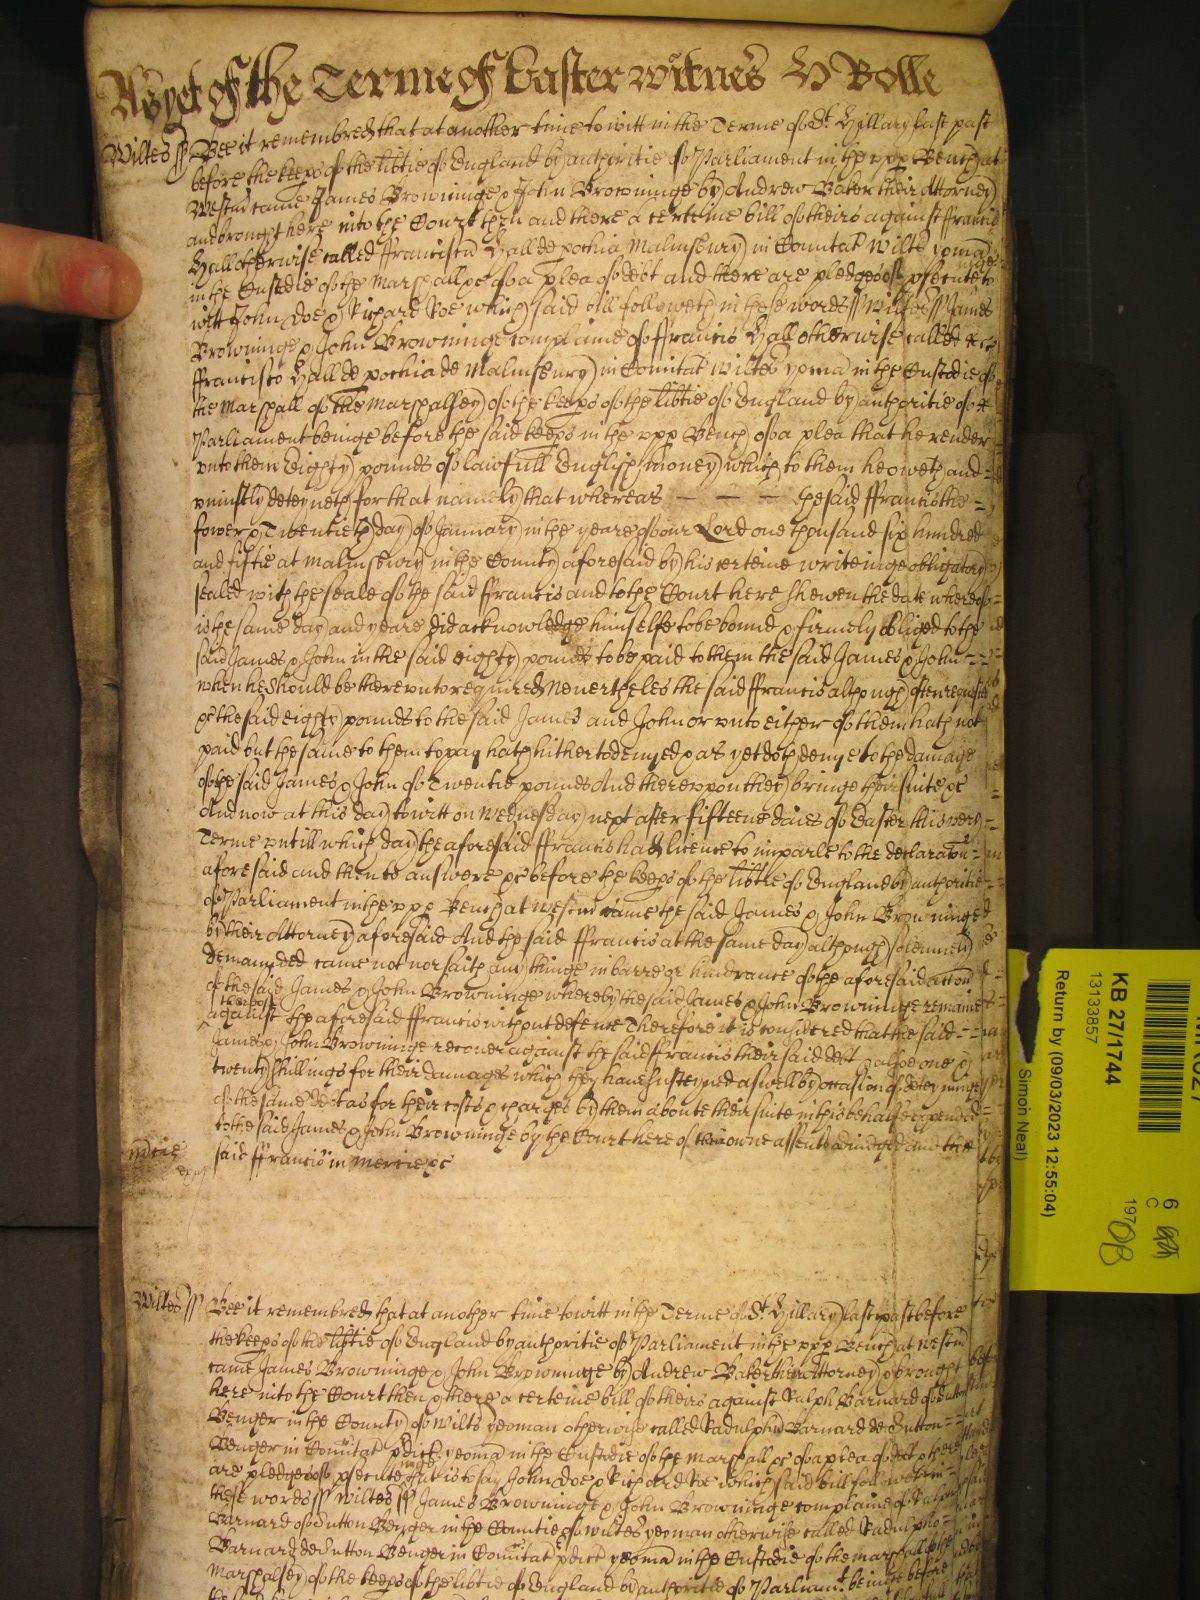 As yet of the Terme of Easter Witnes H Rolle
Wiltes ss Bee it remembred that at another time to witt in the Terme of St Hillary last past
before the keeps of the libtie of England by authoritie of Parliament in the vpp Bench at
Westm came James Browninge & John Browninge by Andrew Baker their Attorney
and brought here into the Court then and there a certeine bill of theirs against Francis
Hall otherwise called ffranciscu Hall de pochia Malmsbury in Comitat Wiltes yoman
in the Custodie of the Marshall &c of a plea of debt and there are pledges of psecute to
witt John Doe & Richard Roe which said bill followeth in these words ss Wiltes ss James
Browninge & John Browninge complaine of ffrancis Hall otherwise called
ffrancisco Hall de pochia de Malmsbury in Comitat Wiltes yoma in the Custodie of
the Marshall of the Marshalsey of the keeps of the libtie of England by authoritie of
Parliament beinge before the said keeps in the vpp Bench of a plea that he render
vnto them Eighty pounds of lawfull English money which to them he oweth and
vniustly deteyneth for that namely that whereas — — — the said ffrancis the
fower & Twentieth day of January in the yeare of our Lord one thousand six hundred
and fiftie at Malmsbury in the County aforesaid by his certeine writeinge obligatory
sealed with the seale of the said ffrancis and to the Court here shewen the date whereof
is the same day and yeare did acknowledge himselfe to be bound & firmely obliged to the
said James & John in the said eighty pounds to be paid to them the said James & John
when he should be therevnto required Neverthelees the said ffrancis although often requested
&c the said eighty pounds to the said James and John or vnto either of them hath not
paid but the same to them to pay hath hitherto denyed & as yet doth denye to the damage
of the said James & John of Twentie pounds And therevpon they bringe their suite &c
And now at this day to witt on Wednesday next after fifteene daies of Easter this very
Terme vntill which day the aforesaid ffrancis had licence to imparle to the declaraton
aforesaid and then to answere &c before the keeps of the libtie of England by authoritie
of Parliament in the vpp Bench at Westm came the said James & John Browninge
by their Attorney aforesaid And the said ffrancis at the same day although solemnely
demanded came not nor saith any thinge in barre or hindrance of the aforesaid accon
of the said James & John Browninge whereby the said James & John Browninge remaine
against the aforesaid ffrancis without defence Therefore it is considered that the said
James & John Browninge recover against the said ffrancis their said debt & alsoe one &
twenty shillings for their damages which they have susteyned aswell by occasion of deteyninge
of the same debt as for their costs & charges by them aboute their suite in this behalfe expended
to the said James & John Browninge by the Court here of their owne assent adiudged and the
mcie said ffrancis in mercie &c
Wiltes ss Bee it remembred that at another time to witt in the Terme of St Hillary last past before
the keeps of the libtie of England by authoritie of Parliament in the vpp Bench at Westm
came James Browninge & John Browninge by Andrew Baker their Attorney & brought
here into the Court then & there a certeine bill of theirs against Ralph Barnard of Sutton
Benger in the County of Wilts yeoman otherwise called Radulphu Barnard de Sutton
Benger in Comitat pdict yeoma in the Custodie of the Marshall &c of a plea of debt & there
are pledges of psecute that is to say John Doe & Richard Roe which said bill followeth in
these words ss Wiltes ss James Browninge & John Browninge complaine of Ralph
Barnard of Sutton Benger in the Countie of Wiltes yeoman otherwise called Radulpho
Barnard de Sutton Benger in Comitat pdict yeoma in the Custodie of the Marshall of the
Marshalsey of the keeps of the libtie of England by authoritie of Parliamt beinge before
KB 27/1744
13133857
Return by (09/03/2023 12:55:04)
Simon Neal)
6
C
197